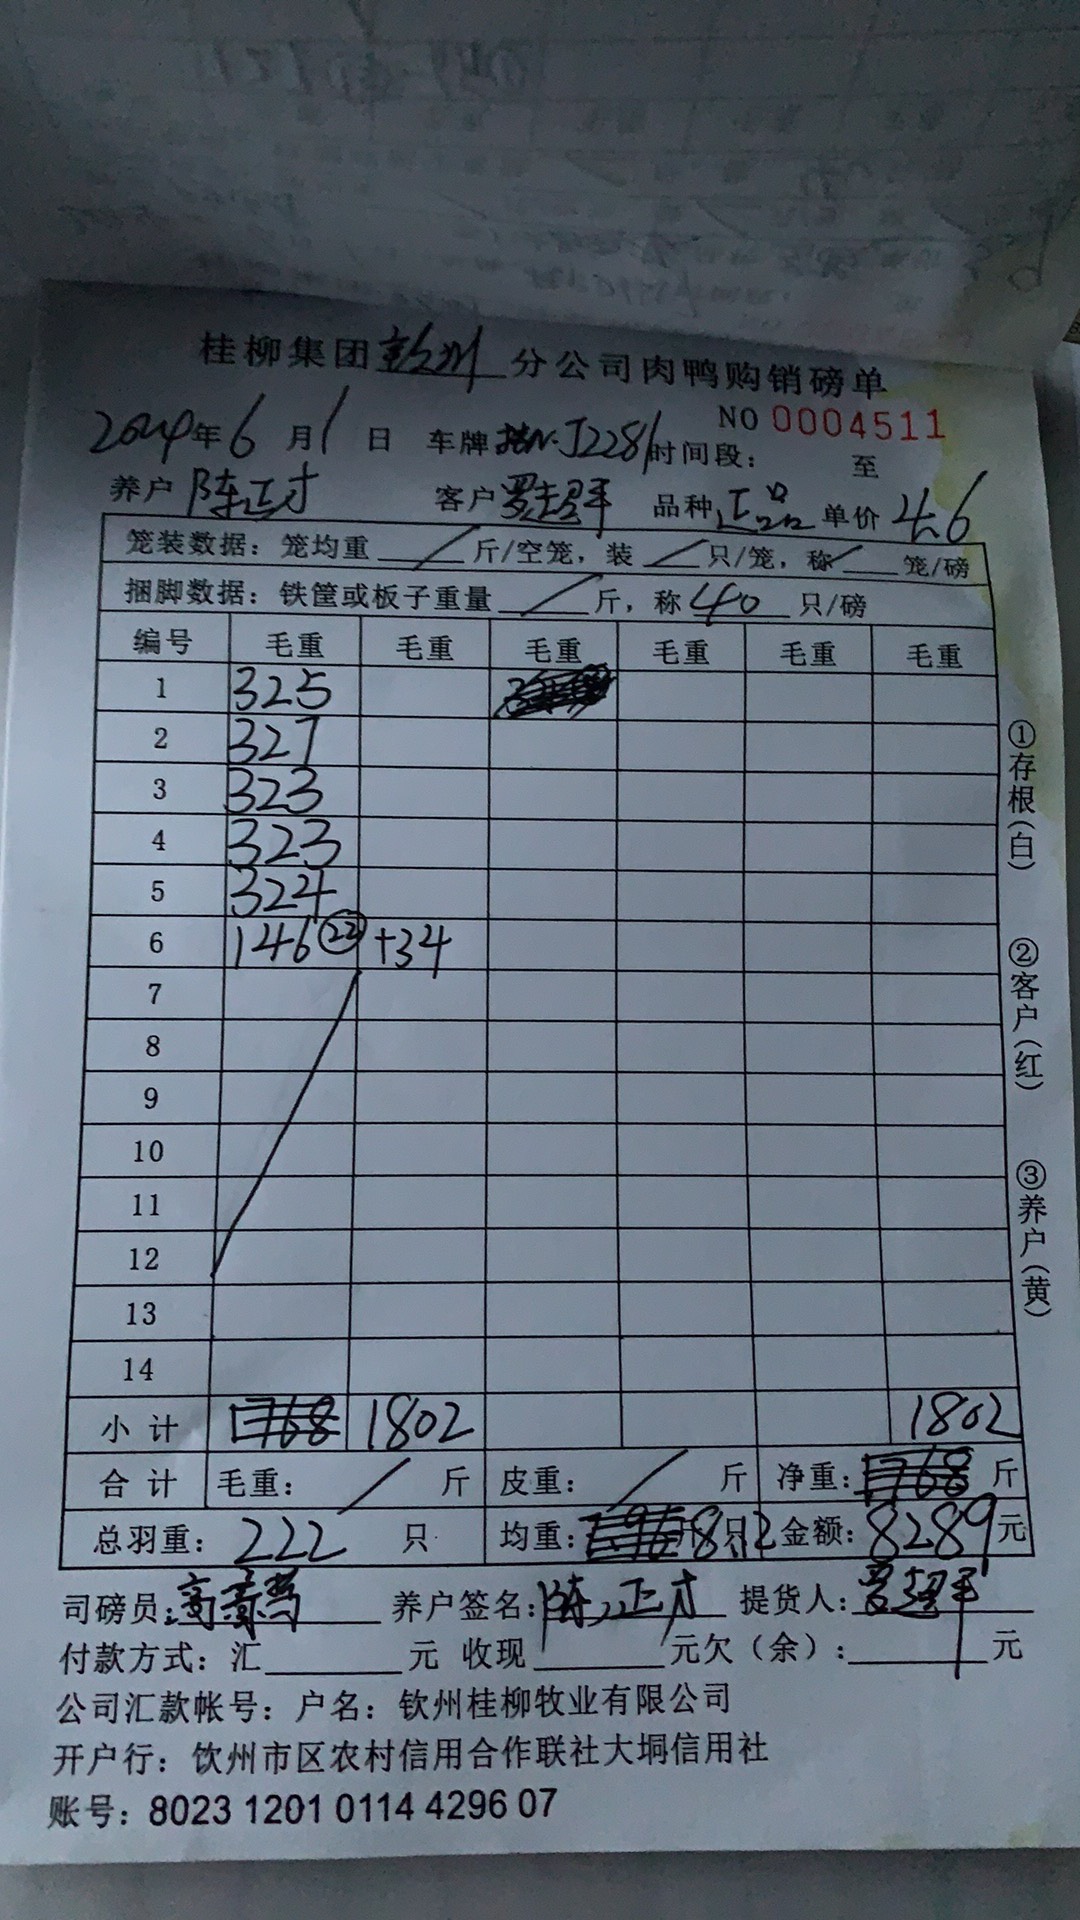 桂柳集团钦州分公司肉鸭购销磅单
NO 0004511
2024年6月1日 车牌 J2281 时间段： 至
养户 陈正才 客户 罗超军 品种 正品 单价 4.6
笼装数据：笼均重 / 斤/空笼，装 / 只/笼，称 / 笼/磅
捆脚数据：铁筐或板子重量 / 斤，称 40 只/磅
编号 毛重 毛重 毛重 毛重 毛重 毛重
1 325
2 327
3 323
4 323
5 324
6 146 22 +34
7
8
9
10
11
12
13
14
小计 1768 1802 1802
合计 毛重： / 斤 皮重： / 斤 净重：1768 斤
总羽重：222 只 均重：8.12 金额：8289元
司磅员： 养户签名：陈正才 提货人：罗超军
付款方式：汇 元 收现 元欠（余）： 元
公司汇款帐号：户名：钦州桂柳牧业有限公司
开户行：饮州市区农村信用合作联社大垌信用社
账号：8023 1201 0114 4296 07
①存根（白）
②客户（红）
③养户（黄）